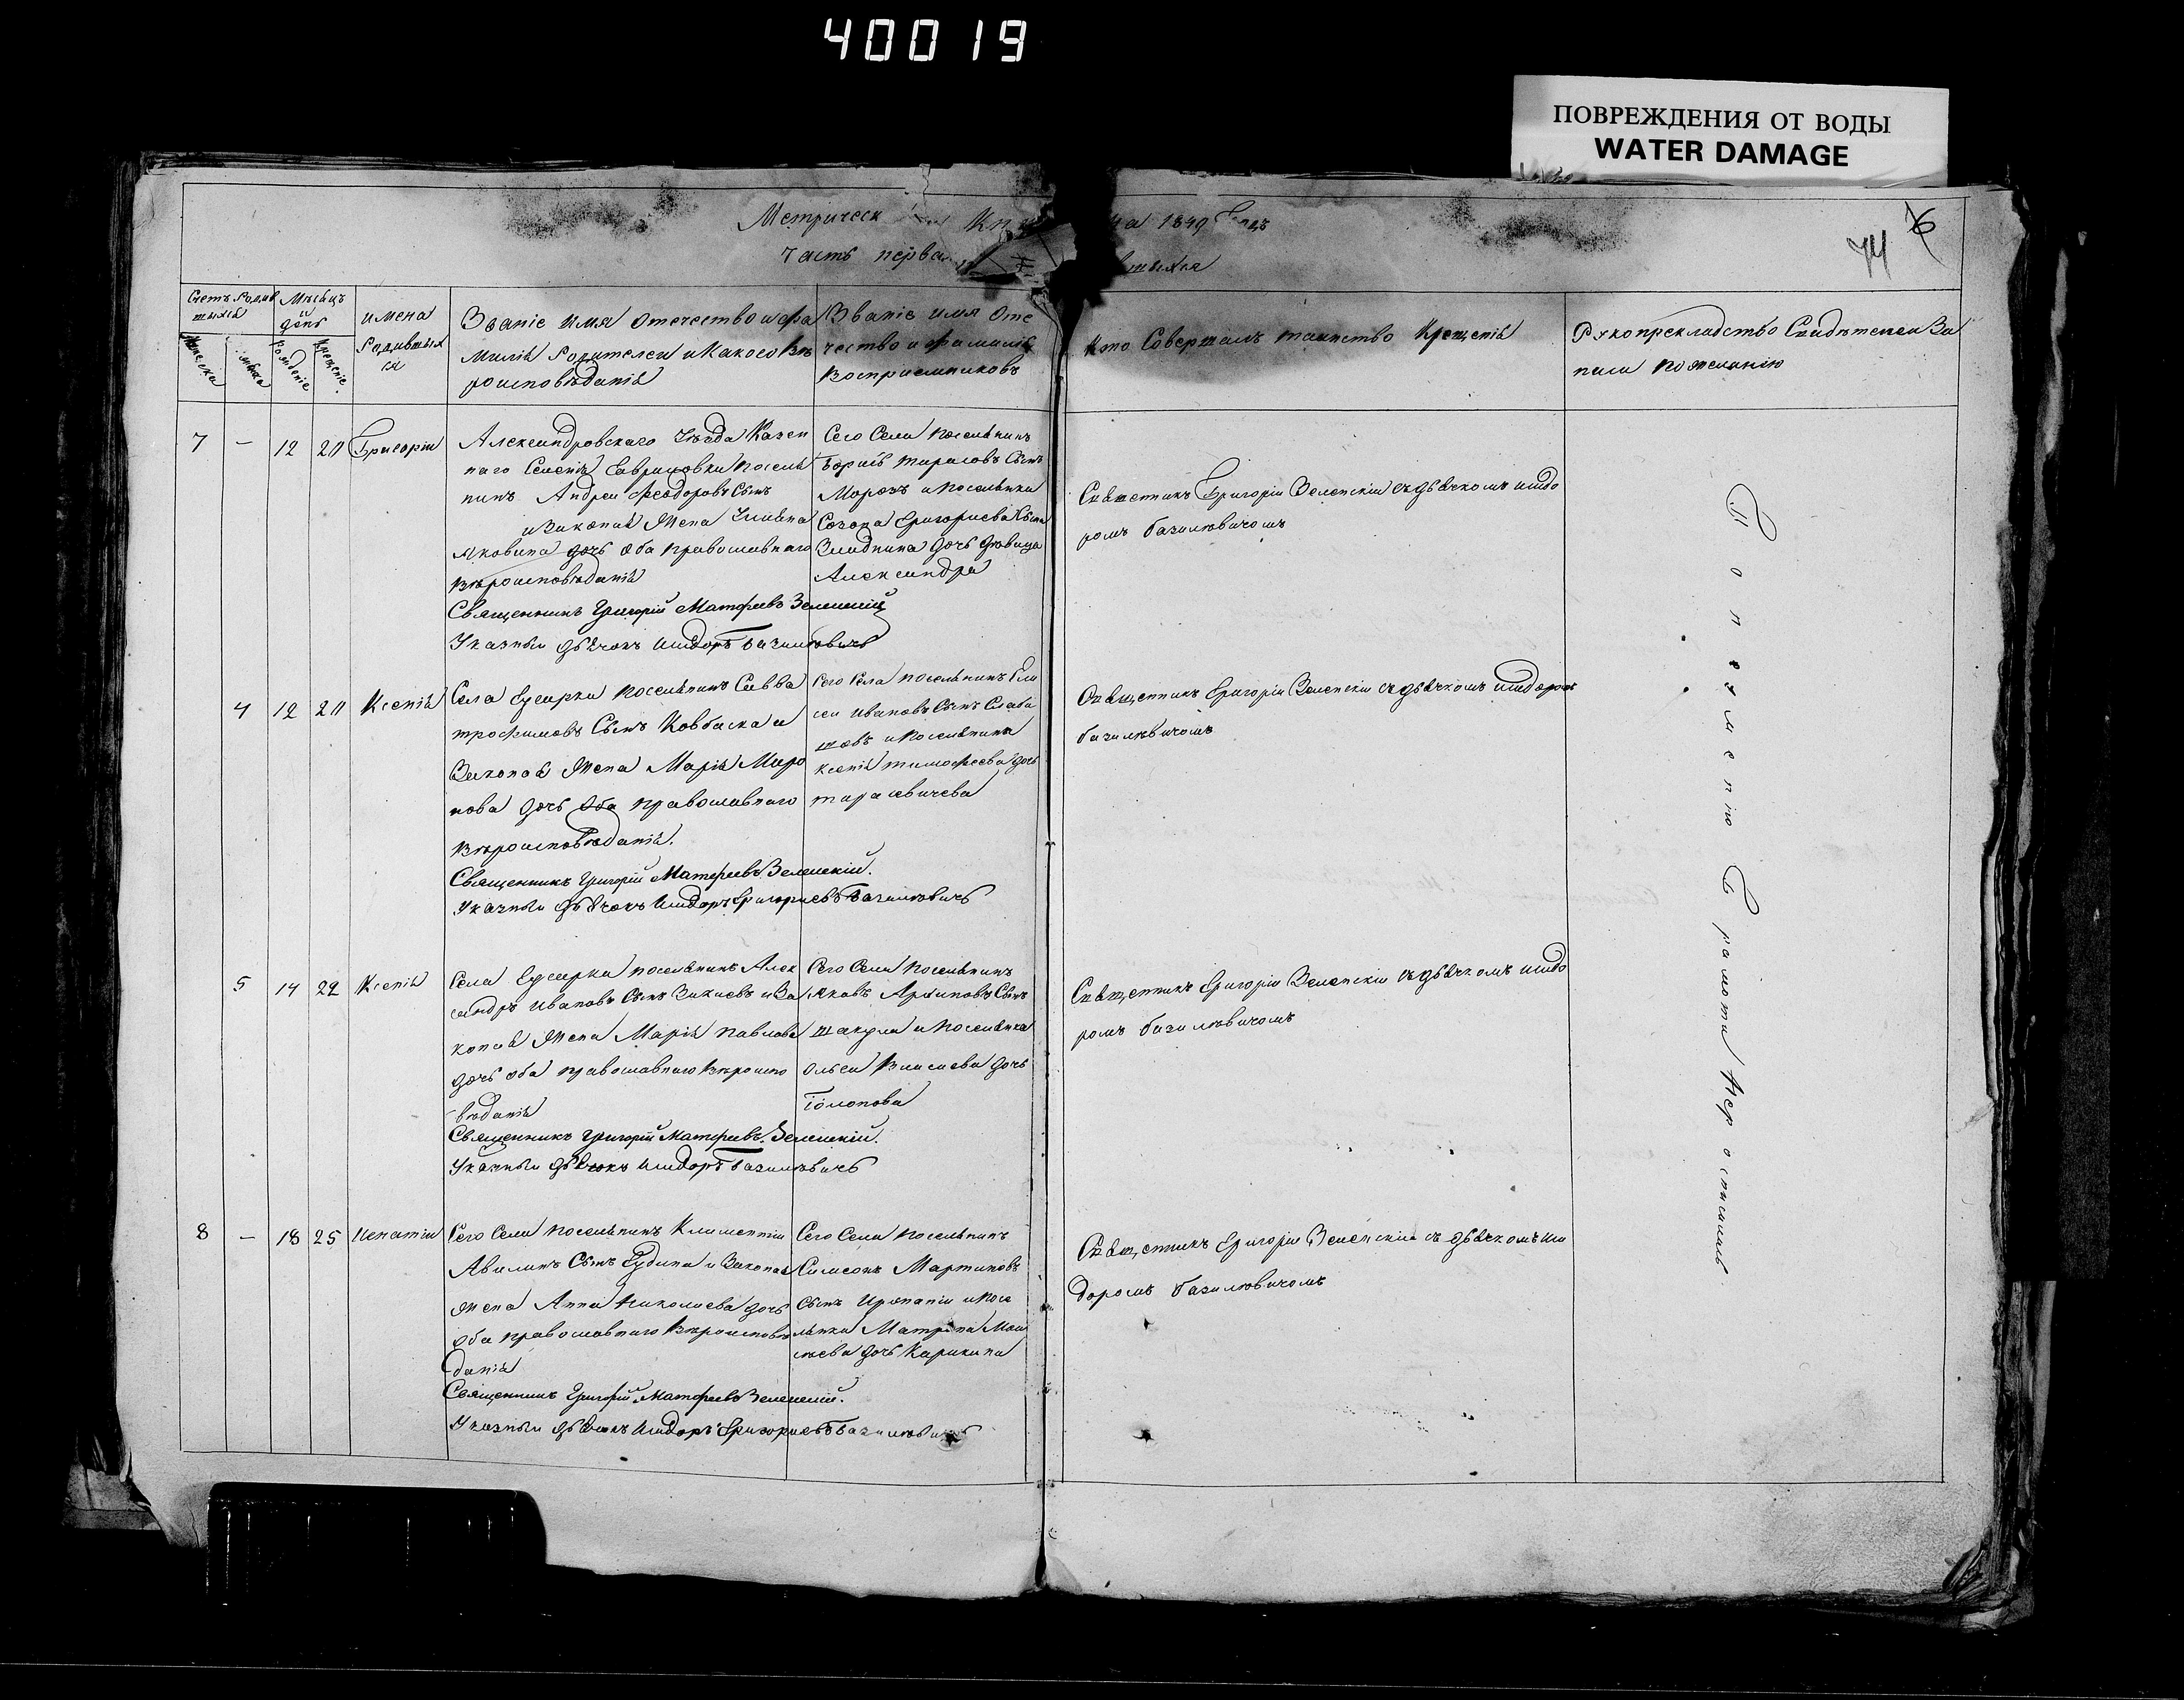 40019
ПОВРЕЖДЕНИЯ ОТ ВОДЫ
WATER DAMAGE
Метрическ Кн на 1849 Годъ
Часть перва
6
74
Счетъ Родив
шыхся
Мѣсяцъ
и
день
имена
Родившых
ся
Званіе имя отечество и фа
милія Родителеи и Какого Вѣ
роисповѣданія
Званіе имя Оте
чество и фамилія
Воспріемниковъ
Кто Совершалъ таинство Крещенія
Рукоприкладство Свидѣтелеи За
писи по желанію
Мужеска
Рожденіе
Крещеніе
7 — 12 20 Григоріи
Александровскаго Уѣзда Казен
наго Селенія Гавриловки поселя
нинъ Андреи Феодоровъ Сынъ
и Законая Жена
Яковлена дочь Оба Православнаго
Вѣроисповѣданія
Священникъ Григорій Матфеевъ Зеленскій
Указныи дьячокъ Исидоръ Базилювичъ
Сего Села поселянинъ
Борисъ Тарасовъ Сынъ
Морозъ и поселянки
Григориева
дочь дѣвица
Александра
Священникъ Григоріи Зеленскіи съ дьячкомъ исидо
ромъ базилювичомъ
4 12 20 Ксенія
Села поселянинъ Савва
трофимовъ Сынъ Ковбаска и
Законая Жена Марія Миро
нова дочь Оба православнаго
вѣроисповѣданія.
Священникъ Григорій Матфеевъ Зеленскій.
Указныи дьячокъ Исидоръ Григориевъ Базилювичъ
Сего Села поселянинъ Ели
сеи Ивановъ Сынъ Слаби
шовъ и поселянина
Ксенія тимофеева дочь
тарасевичева
Священникъ Григоріи Зеленскіи съ дьячкомъ исидоромъ
базилювичомъ
5 14 22 Ксенія
Села поселянинъ Алек
сандръ Ивановъ Сынъ и За
коная Жена Марія Павлова
дочь оба православнаго Вѣроиспо
вѣданія
Священникъ Григорій Матфеевъ Зеленскій.
Указныи дьячокъ Исидоръ Базилювичъ
Сего Села поселянинъ
Яковъ Сынъ
шакула и поселянка
Ольга Власиева дочь
Голопова
Священникъ Григоріи Зеленскіи съ дьячкомъ исидо
ромъ базилювичомъ
8 — 18 25 Игнатіи
Сего Села поселянинъ Климентіи
Сынъ Гудина и Законая
Жена Анна Николаева дочь
Оба православнаго Вѣроисповѣ
данія
Священникъ Григорій Матфеевъ Зеленскій.
Указныи дьячокъ Исидоръ Григориевъ Базилювичъ
Сего Села поселянинъ
Симеонъ Мартиновъ
Сынъ и посе
лянки Матрона Мои
сеева дочь
Священникъ Григоріи Зеленскіи съ дьячкомъ иси
доромъ базилювичомъ
По незменію Грамоти Неросписались